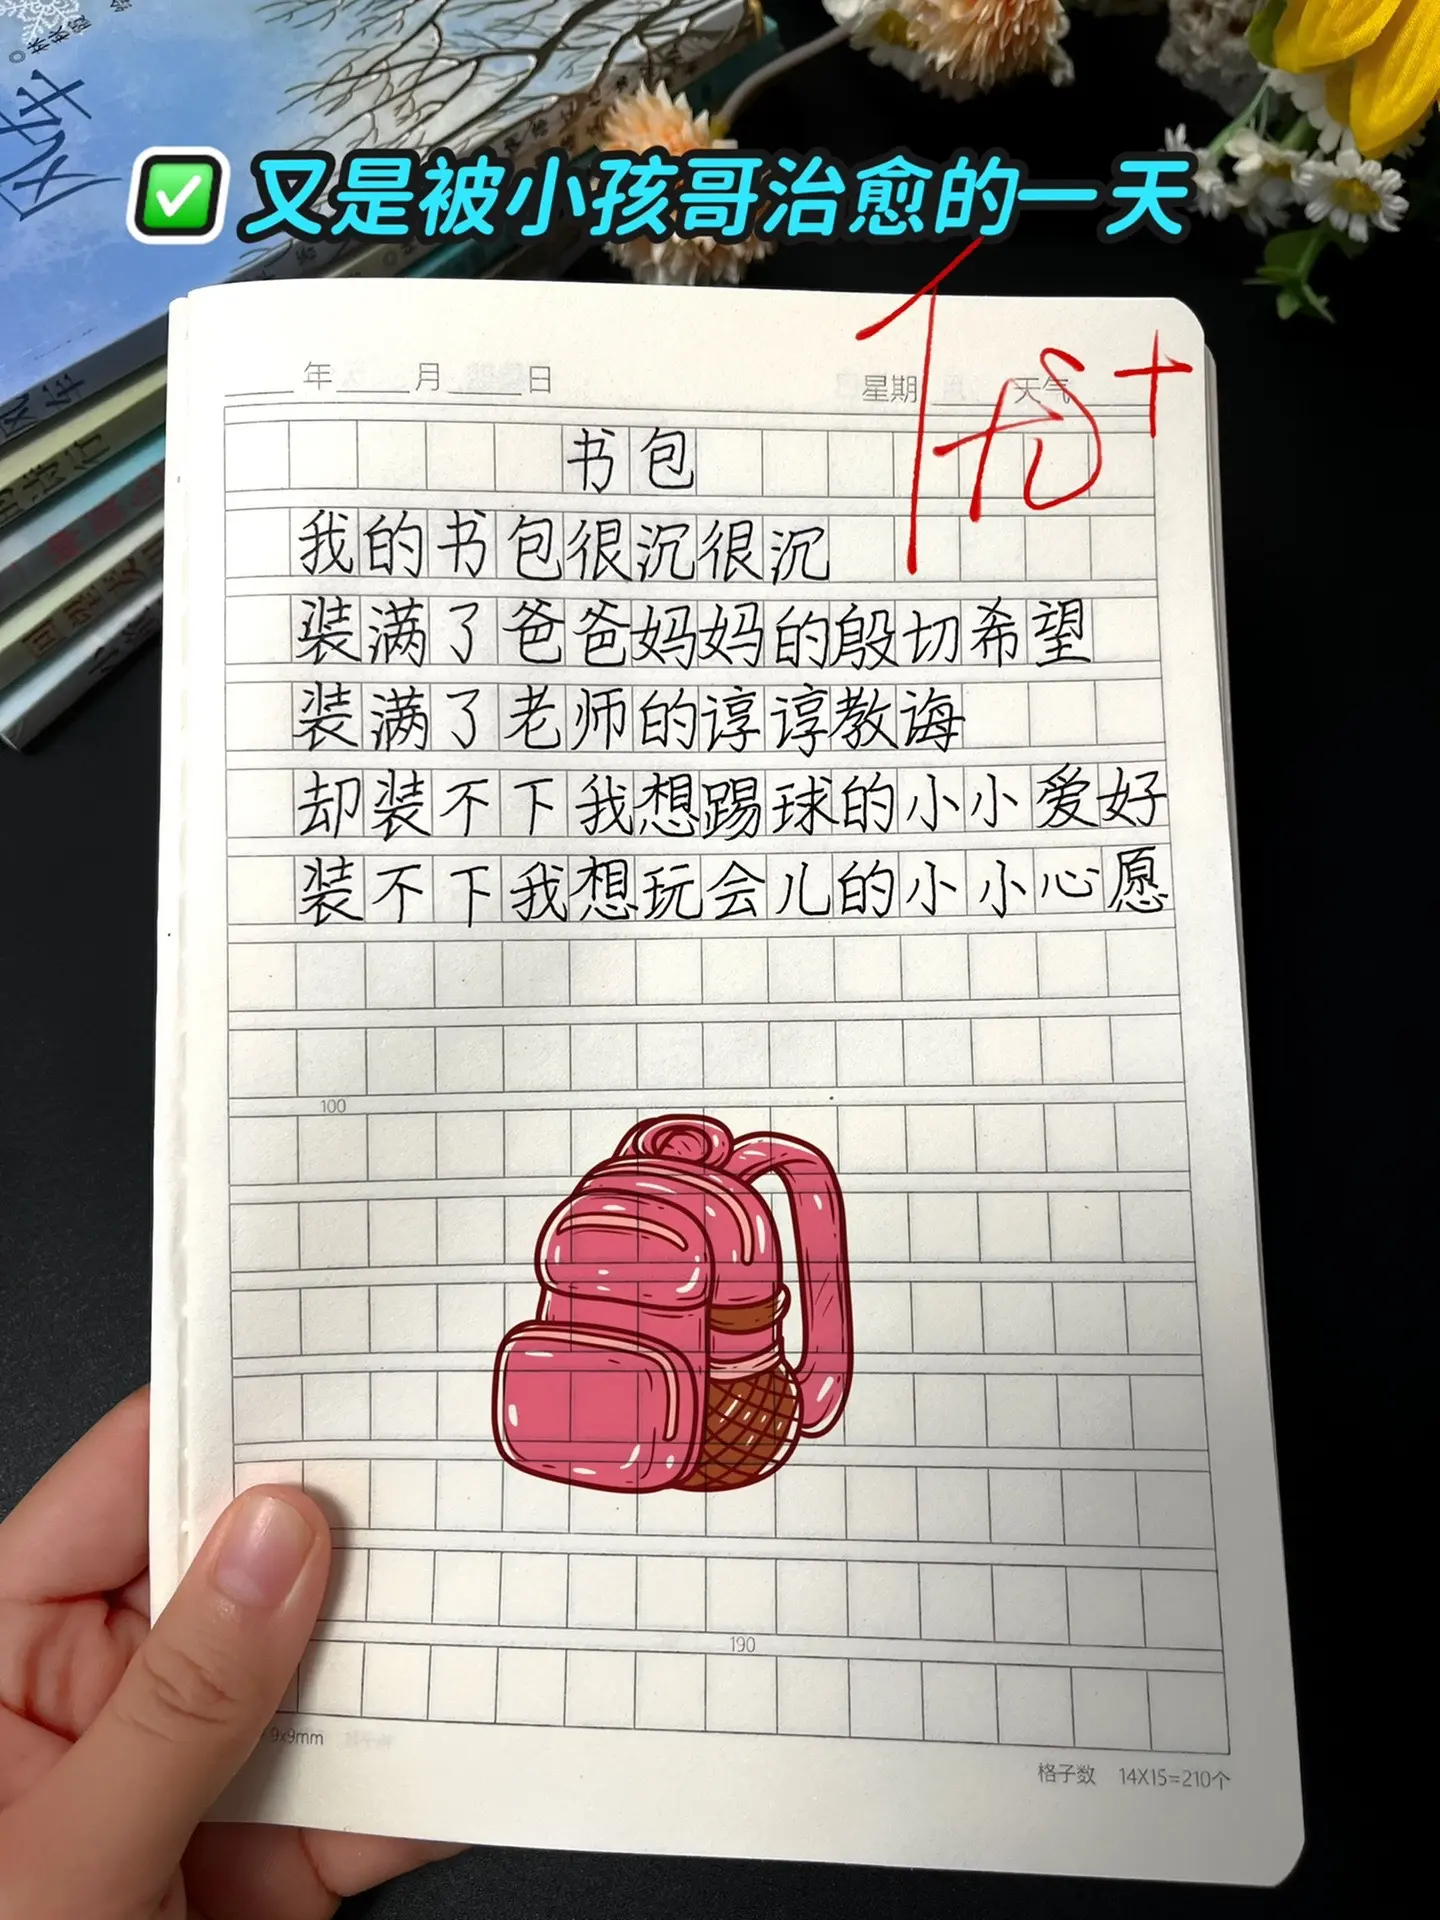 ✅又是被小孩哥治愈的一天
年 月 日
星期 天气
优+
书包
我的书包很沉很沉
装满了爸爸妈妈的殷切希望
装满了老师的谆谆教诲
却装不下我想踢球的小小爱好
装不下我想玩会儿的小小心愿
100
190
9x9mm
格子数 14X15=210个